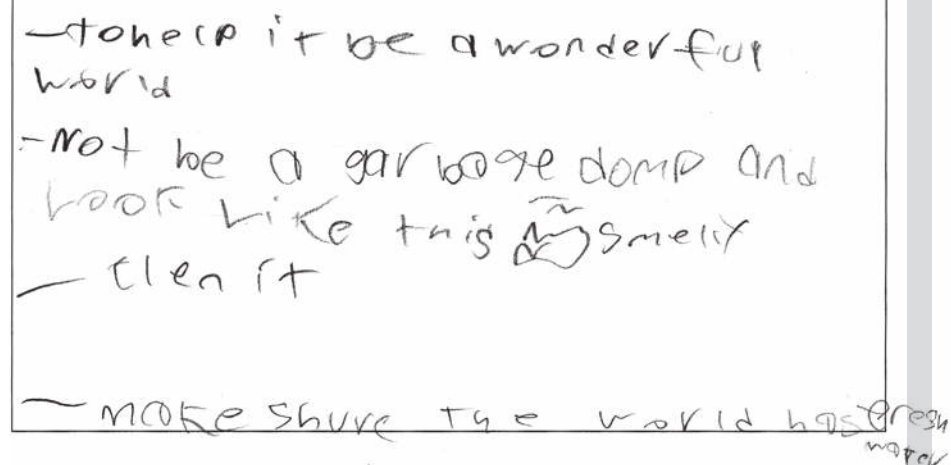 - to help it be a wonderful
world
- Not be a garboge domp and
Look Like this smelly
- clen it
- make shure the world has fresh
water